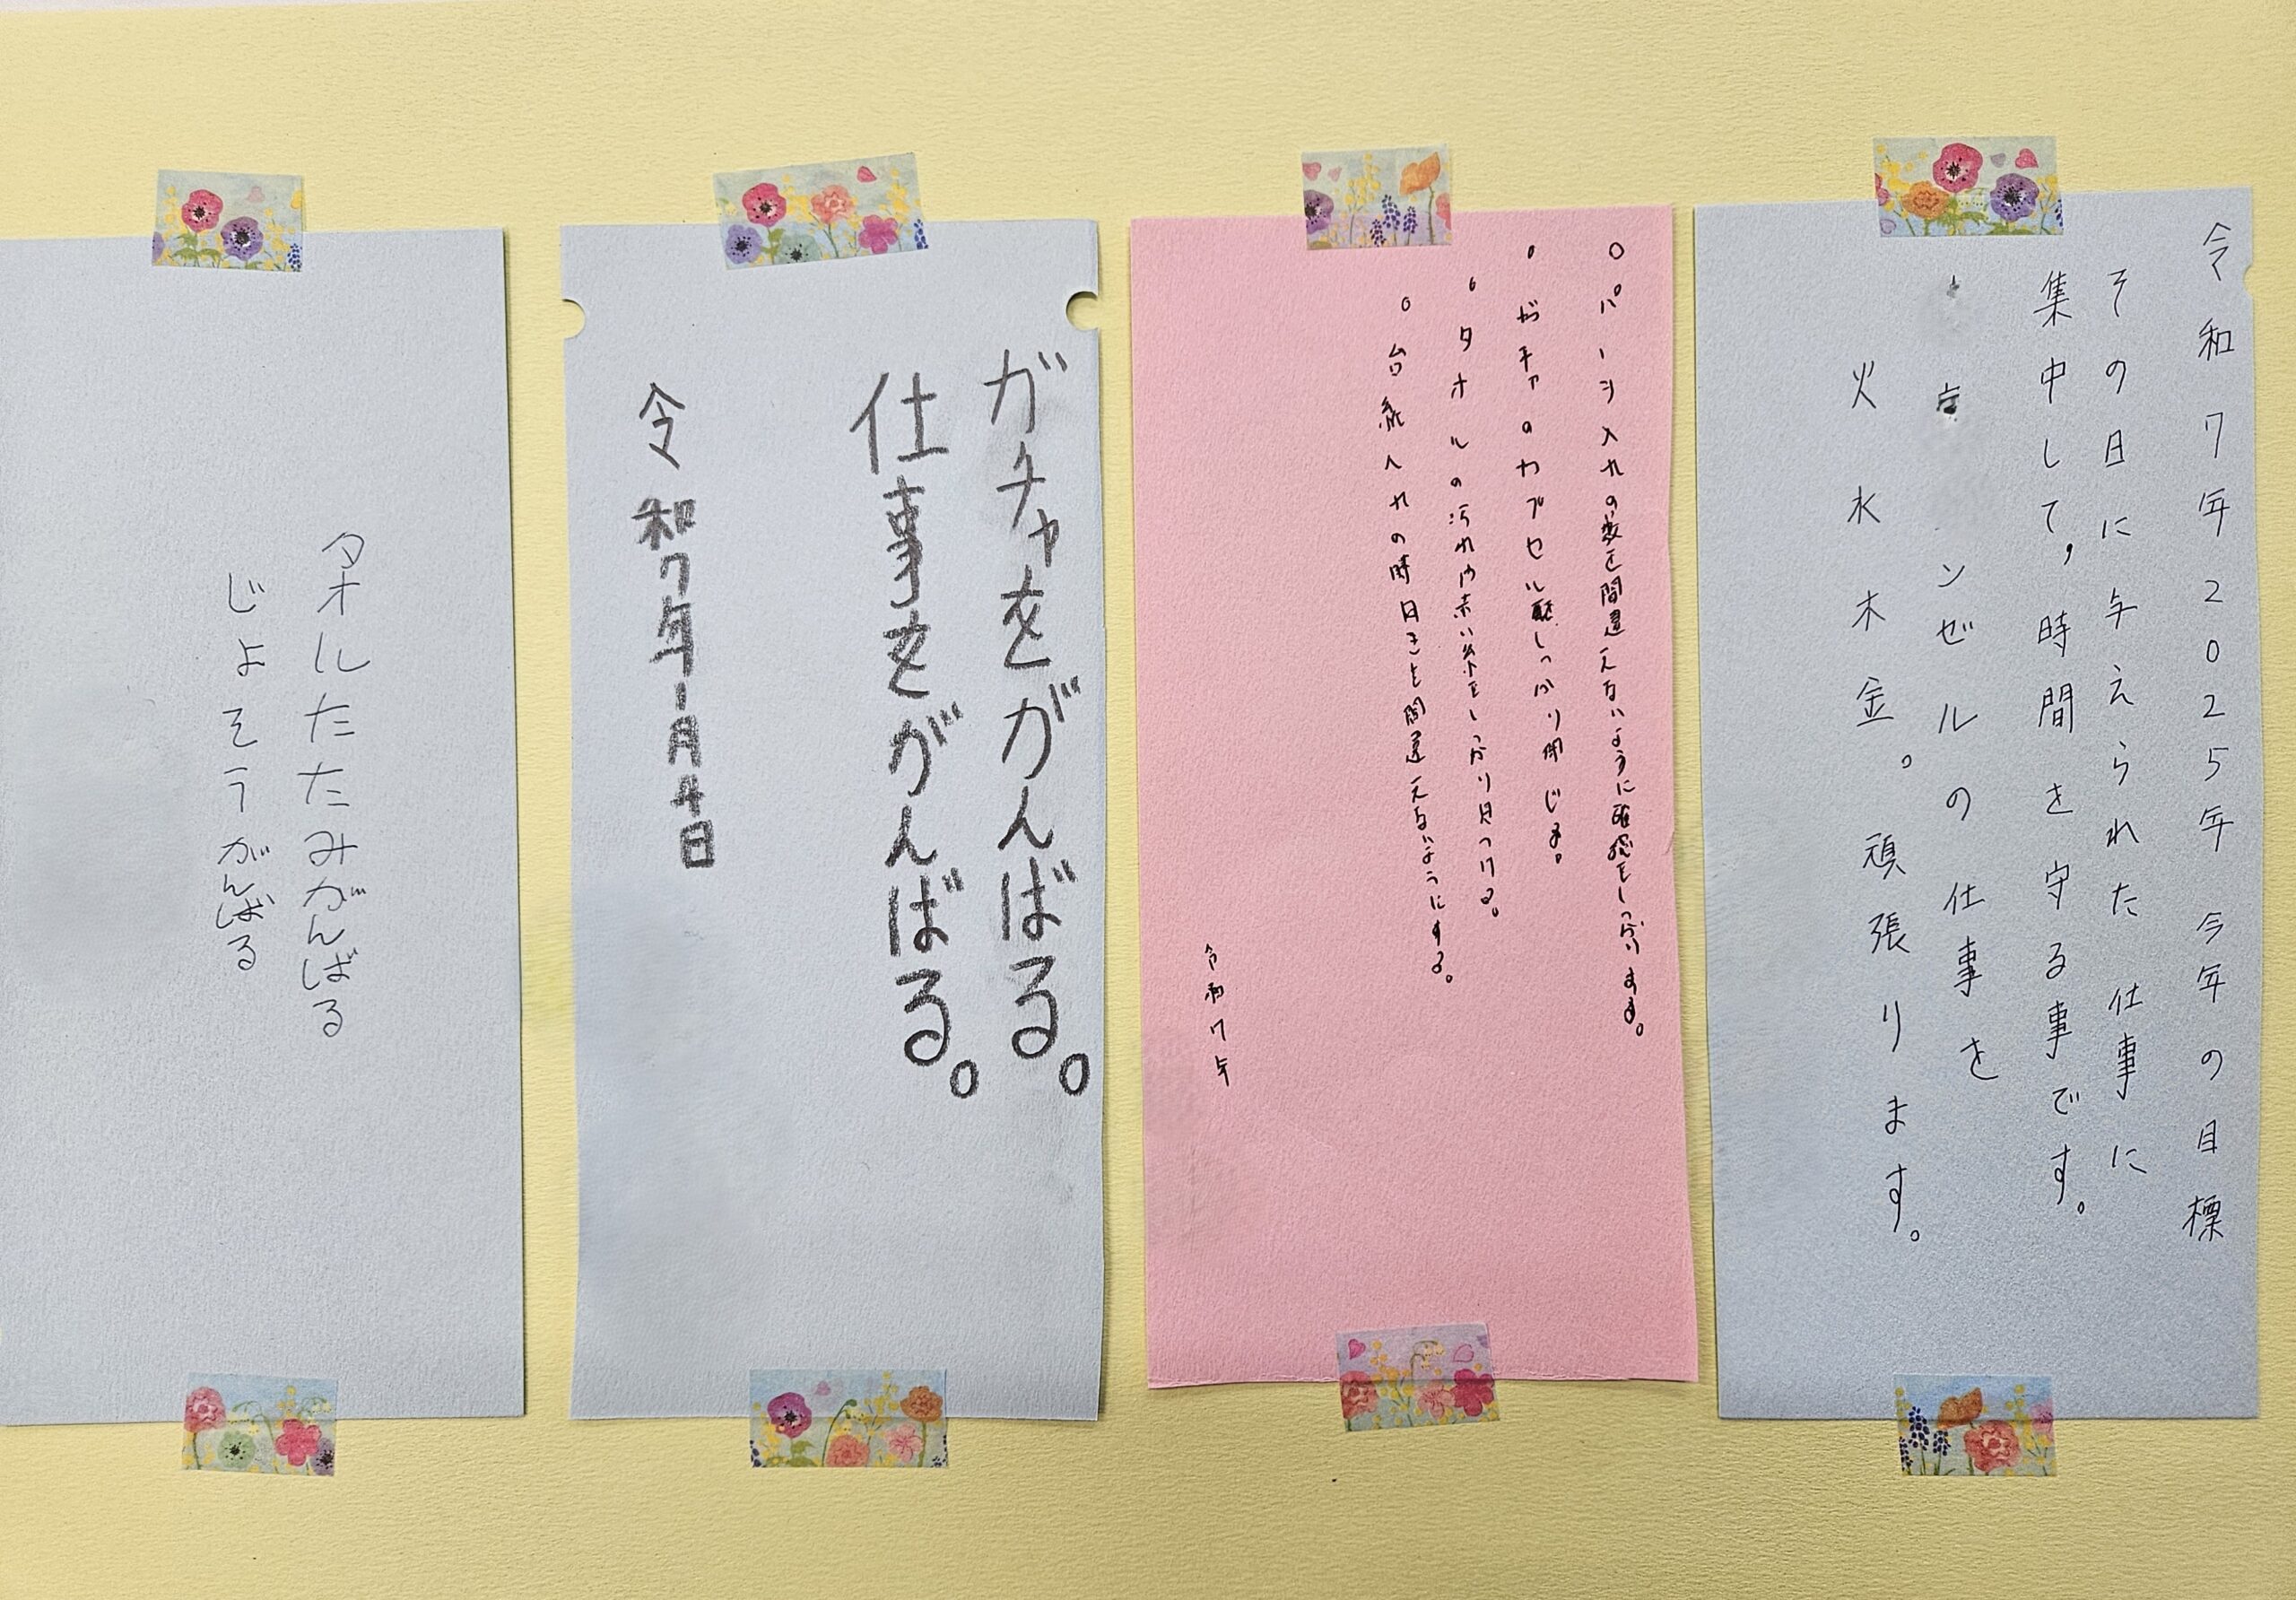 令和7年2025年 今年の目標
その日に与えられた仕事に
集中して,時間を守る事です。
ンゼルの仕事を
火水木金。頑張ります。
○パーツ入れの数を間違えないように確認をしっかりする。
・ガチャのカプセルしっかり閉じる。
・タオルの汚れや赤い糸をしっかり見つける。
○台紙入れの時向きを間違えないようにする。
令和7年
ガチャをがんばる。
仕事をがんばる。
令和7年1月4日
タオルたたみがんばる
じょそうがんばる